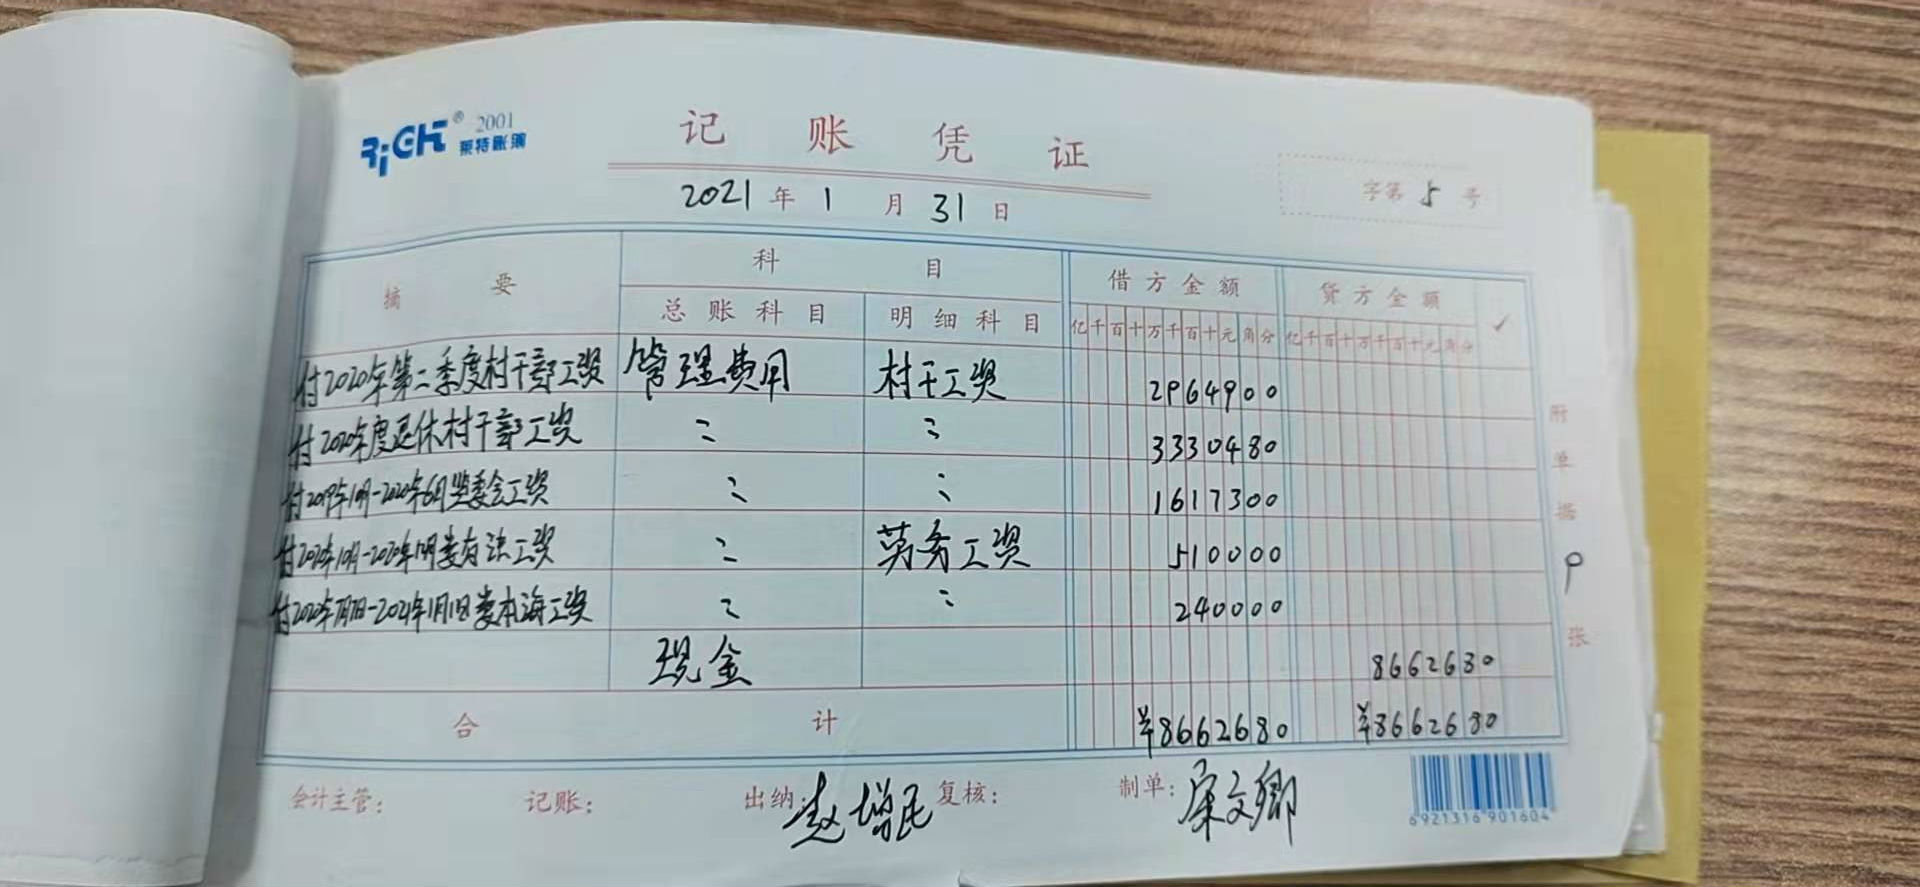 RiGHT® 2001
莱特账簿
记账凭证
2021年1月31日
字第5号
摘要 科目 借方金额 贷方金额 ✓
总账科目 明细科目 亿千百十万千百十元角分 亿千百十万千百十元角分
付2020年第二季度村干部工资 管理费用 村干工资 2964900
付2020年度退休村干部工资 〃 〃 3330480
付2019年10月-2020年6月监委会工资 〃 〃 1617300
工资 〃 劳务工资 510000
-2021年1月1日娄本海工资 〃 〃 240000
现金 8662680
合计 ¥8662680 ¥8662680
附单据9张
会计主管: 记账: 出纳:赵增民 复核: 制单:
6921316901604